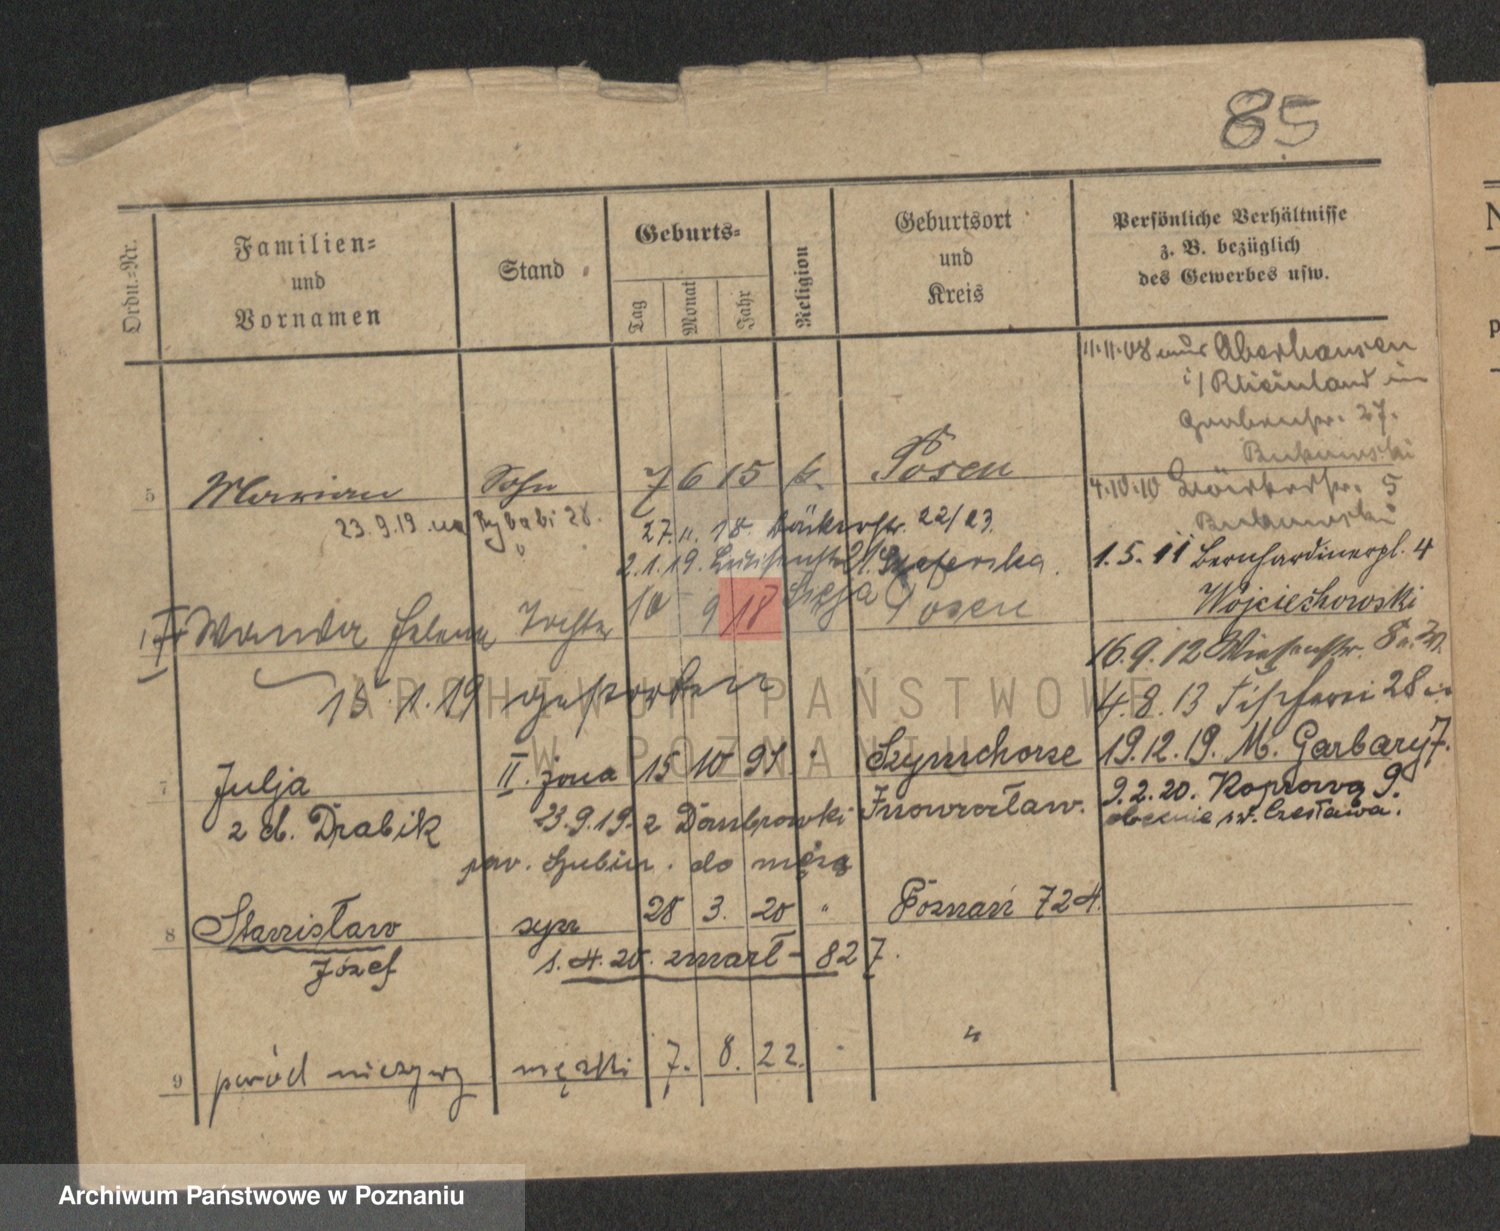 85
Ordn.-Nr.
Familien-
und
Vornamen
Stand
Geburts-
Tag
Monat
Jahr
Religion
Geburtsort
und
Kreis
Persönliche Verhältnisse
z. B. bezüglich
des Gewerbes usw.
11.11.08 aus Oberhausen
i/Rheinland in
Grabenstr. 27.
5 Marian Sohn 7 6 15 k. Posen
4.10.10 5
23.9.19. na Rybaki 28.
27. 11. 18. Bäckerstr. 22/23
2.1.19. Luisenstr.
1.5.11 Bernhardinerpl. 4
Wojciechowski
Wanda Helena Tochter 10 9 18 Posen
16.9.12 Wiesenstr. 8
15.1.19 gestorben
4.8.13 Fischerei 28
7 Julja II. żona 15 10 91 " Szymchorze
19.12.19. M. Garbary 7.
z d. Drabik 23.9.19. z Dombrowki Inowrocław.
9.2.20. Kopowa 9.
obecnie św. Czesława.
pow. Szubin. do męża
8 Stanisław syn 28 3. 20 " Poznań 724.
Józef 1.4.20. zmarł - 827.
9 poród nieżywy męzki 7. 8. 22. - "
ARCHIWUM PAŃSTWOWE
W POZNANIU
Archiwum Państwowe w Poznaniu